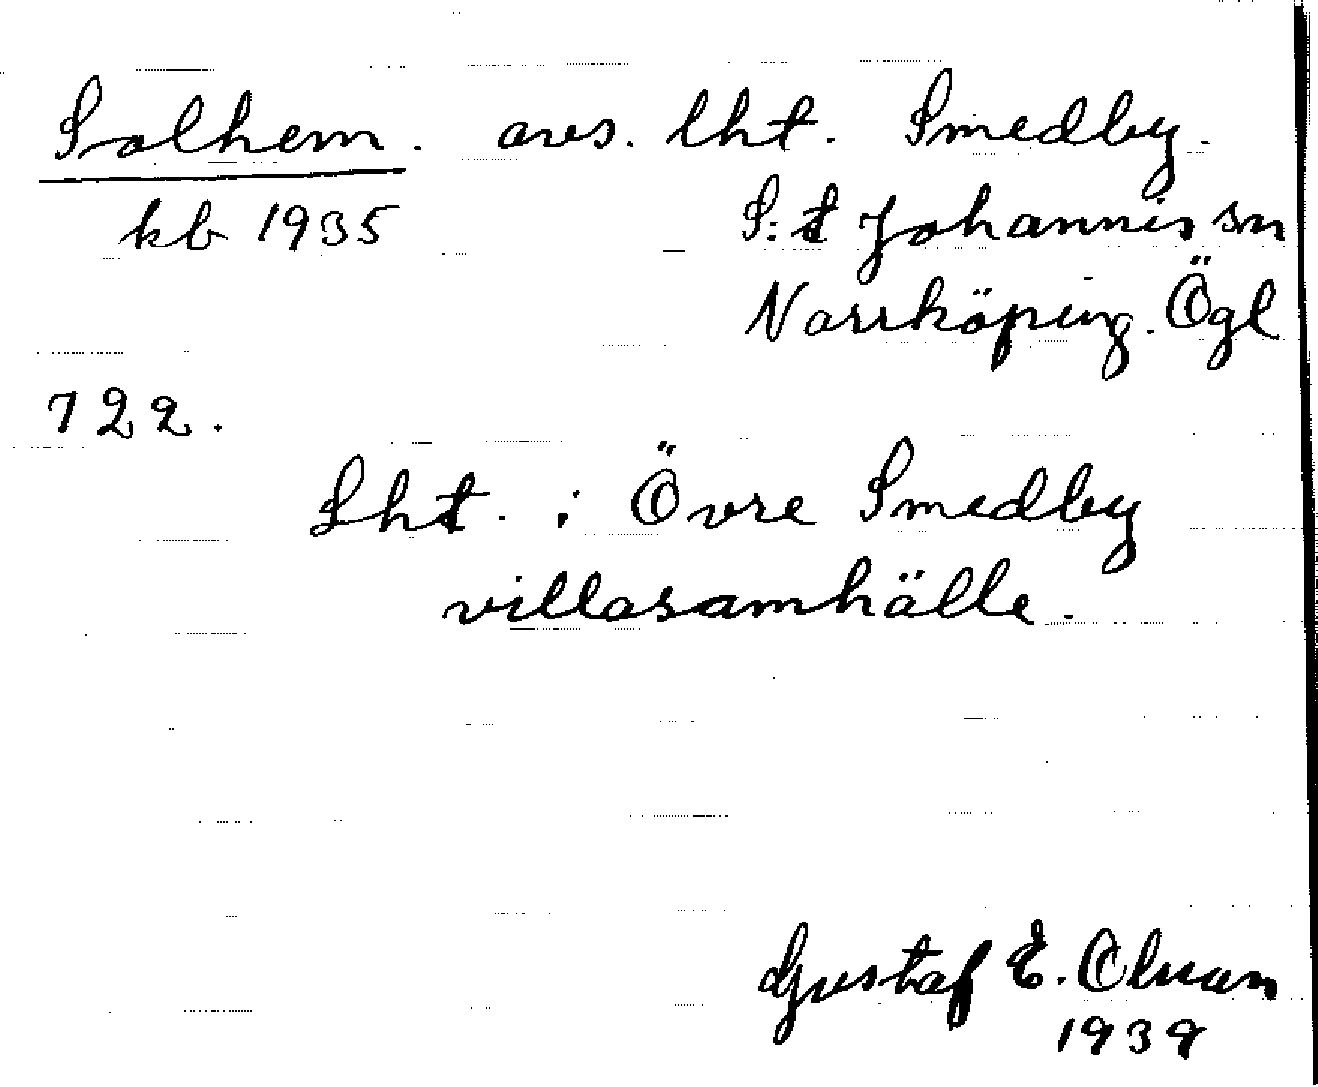 Solhem. avs. lht. Smedby.
kb 1935 S:t Johannis sn
Norrköping. Ögl
122.
Lht. i Övre Smedby
villasamhälle.
Gustaf E. Olsson
1939